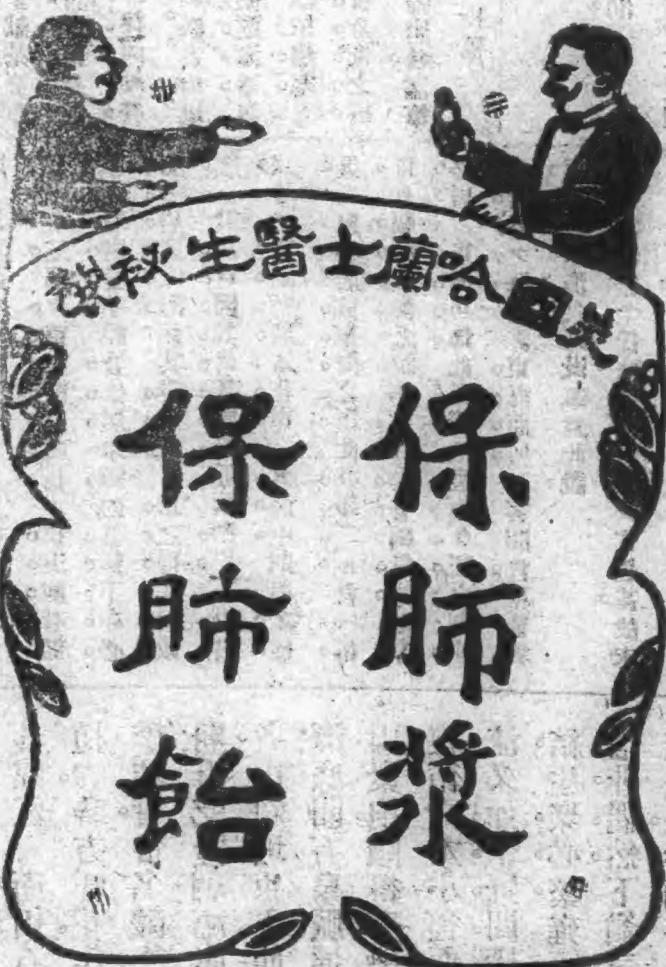 英國哈蘭士醫生秘製
保肺漿
保肺飴